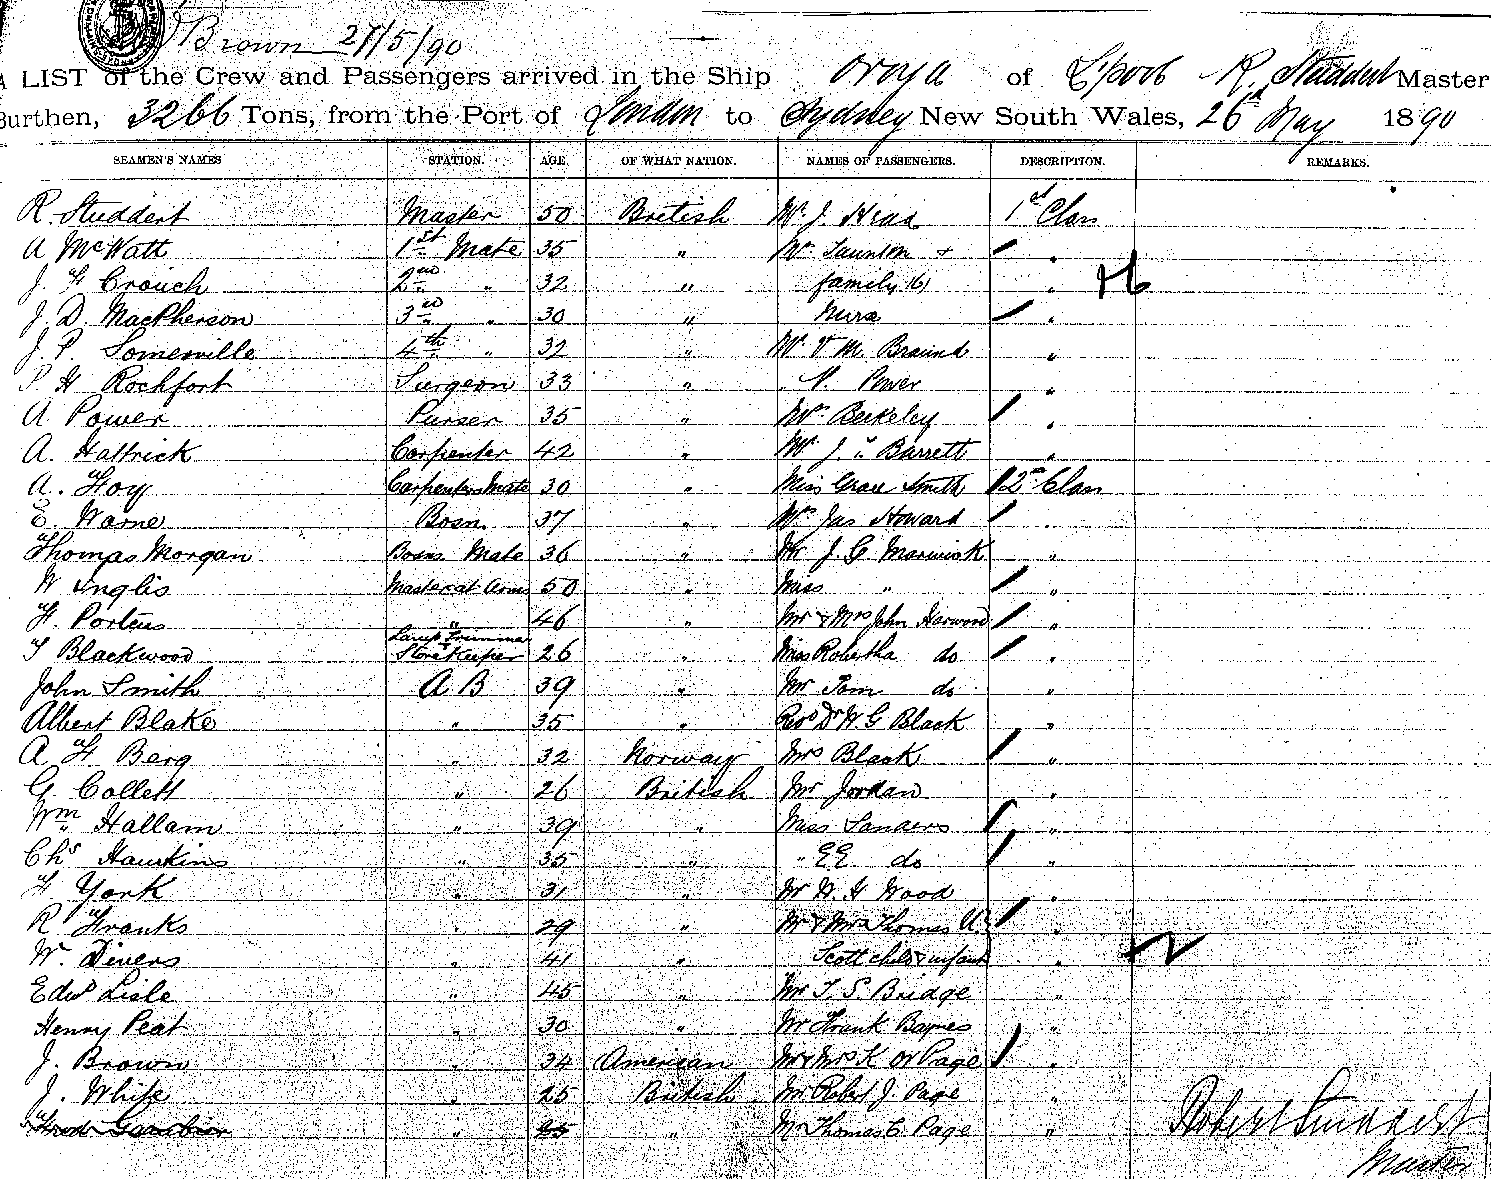 Brown 27/5/90
A LIST of the Crew and Passengers arrived in the Ship Oroya of Lpool R. Studdert Master
Burthen, 3266 Tons, from the Port of London to Sydney New South Wales, 26th May 1890
SEAMEN'S NAMES STATION. AGE. OF WHAT NATION. NAMES OF PASSENGERS. DESCRIPTION. REMARKS.
R. Studdert Master 50 British Mr J. Head 1st Class
A McWatt 1st Mate 35 " Mr Taunton + "
J. F Crouch 2nd " 32 " family (6) "
J. D. MacPherson 3rd " 30 " Nurse "
J. P. Somerville 4th " 32 " Mr V M. Braund "
P H Rochfort Surgeon 33 " " N. Power "
A Power Purser 35 " Mrs Berkeley "
A. Hattrick Carpenter 42 " Mr J. " Barrett "
A. Foy Carpenters Mate 30 " Miss Grace Smith 2nd Class
E. Warne Bosn. 37 " Mrs Jas Howard "
Thomas Morgan Bosns Mate 36 " Mr J. G Marwick "
W Inglis Master at Arms 50 " Miss " "
F. Porteus " 46 " Mr & Mrs John Harwood "
Lamp Trimmer
T Blackwood Storekeeper 26 " Miss Robertha do "
John Smith A B 39 " Mr Tom do "
Albert Blake " 35 " Revd Dr W. G Black "
A F Berg " 32 Norway Mrs Black "
G. Collett " 26 British Mr Jordan "
Wm Hallam " 39 " Miss Sanders "
Chs Hawkins " 35 " " EE do "
F York " 31 " Mr H. F Wood "
R Franks " 29 " Mr & Mrs Thomas
W. Divers " 41 " Scott child & infant "
Edwd Lisle " 45 " Mr T. S. Bridge "
Henry Peat " 30 " Mr Frank Baynes "
J. Brown " 34 American Mr & Mrs K Page "
J. White " 25 British Mr Robert J. Page "
" 25 " Mr Thomas C. Page "
Robert Studdert
Master